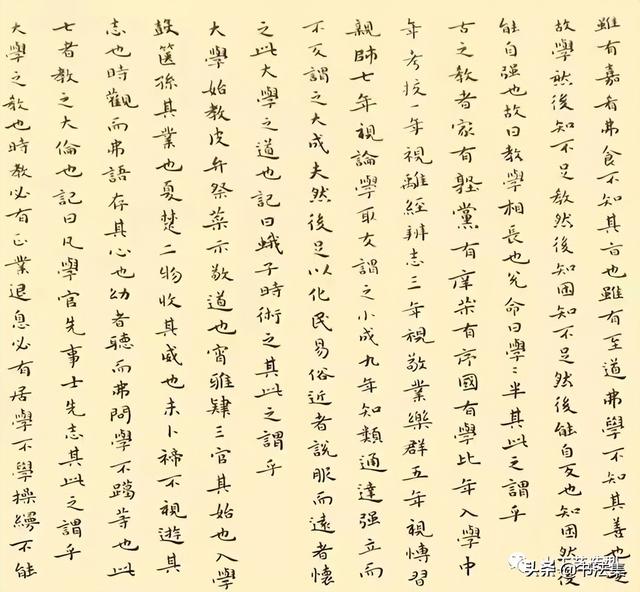 雖有嘉肴弗食不知其旨也雖有至道弗學不知其善也是
故學然後知不足教然後知困知不足然後能自反也知困然後
能自强也故曰教學相長也兌命曰學〻半其此之謂乎
古之教者家有塾黨有庠術有序國有學比年入學中
年考校一年視離經辨志三年視敬業樂群五年視博習
親師七年視論學取友謂之小成九年知類通達强立而
不反謂之大成夫然後足以化民易俗近者說服而遠者懷
之此大學之道也記曰蛾子時術之其此之謂乎
大學始教皮弁祭菜示敬道也宵雅肄三官其始也入學
鼓篋孫其業也夏楚二物收其威也未卜禘不視遊其
志也時觀而弗語存其心也幼者聽而弗問學不躐等也此
七者教之大倫也記曰凡學官先事士先志其此之謂乎
大學之教也時教必有正業退息必有居學不學操縵不能
头条@书法集